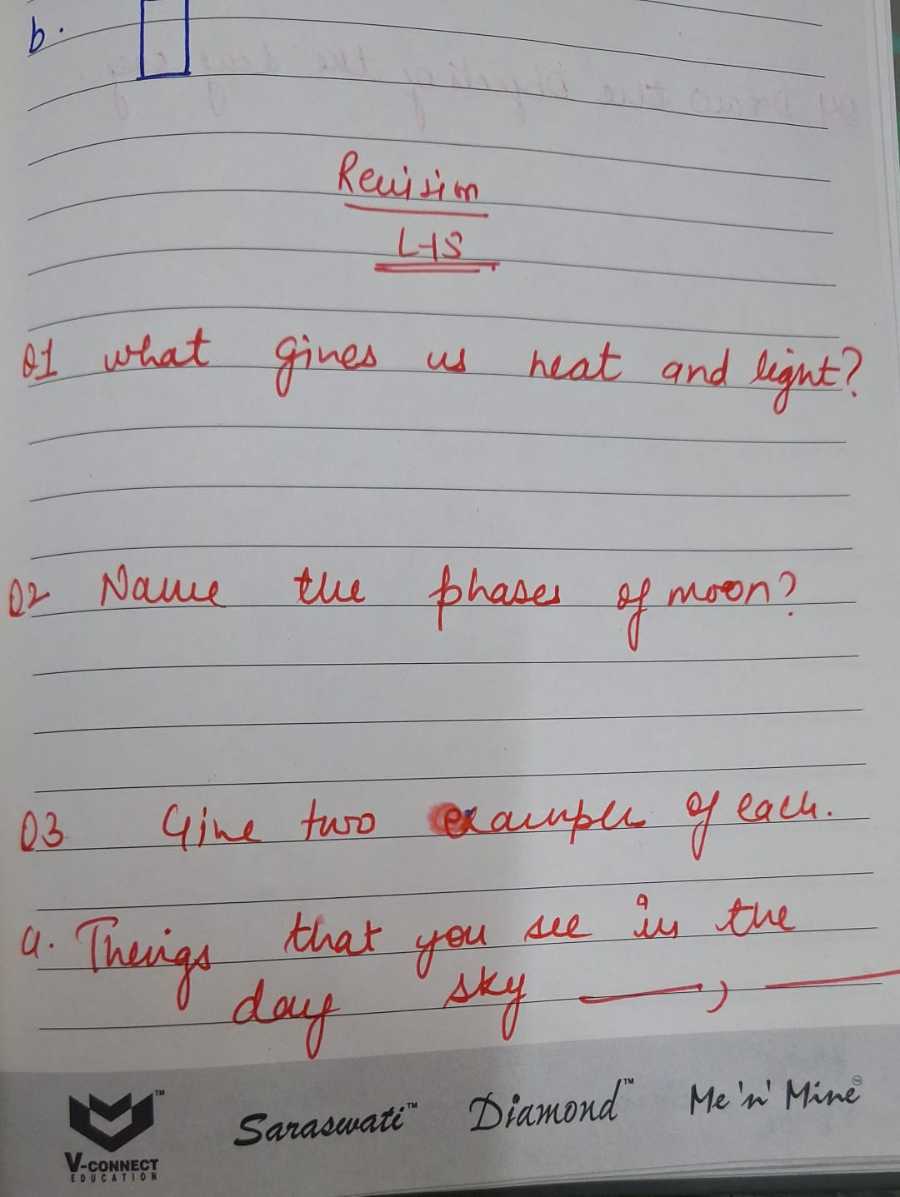 b.
Revision
L-15
Q1 what gives us heat and light?
Q2 Name the phases of moon?
Q3 Give two example of each.
a. Things that you see in the
day sky ——, ——
V-CONNECT
EDUCATION
Saraswati™
Diamond™
Me 'n' Mine®